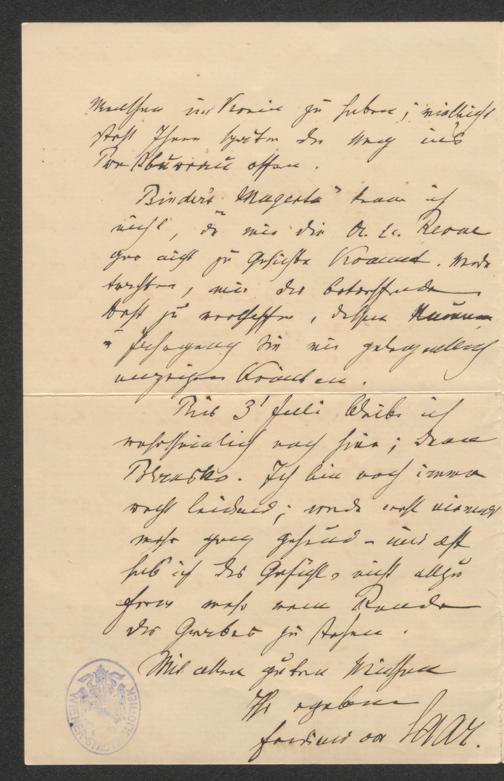 Menschen im Verein zu haben; vielleicht
steht Ihnen später der Weg ins
Pressbureau offen.
Binder's „Magerta" kenne ich
nicht, da mir die Revue
gar nicht zu Gesichte kommt. Werde
trachten, mir das betreffende
Heft zu verschaffen, dessen Nummer
u Jahrgang Sie mir gelegentlich
anzeigen könnten.
Bis 3' Juli bleibe ich
wahrscheinlich noch hier; dann
Blansko. Ich bin noch immer
recht leidend; werde wohl niemals
mehr ganz gesund – und oft
hab' ich das Gefühl, nicht allzu
fern mehr vom Rande
des Grabes zu stehen.
Mit allen guten Wünschen
Ihr ergebener
Ferdinand von Saar.
WIENER STADTBIBLIOTHEK